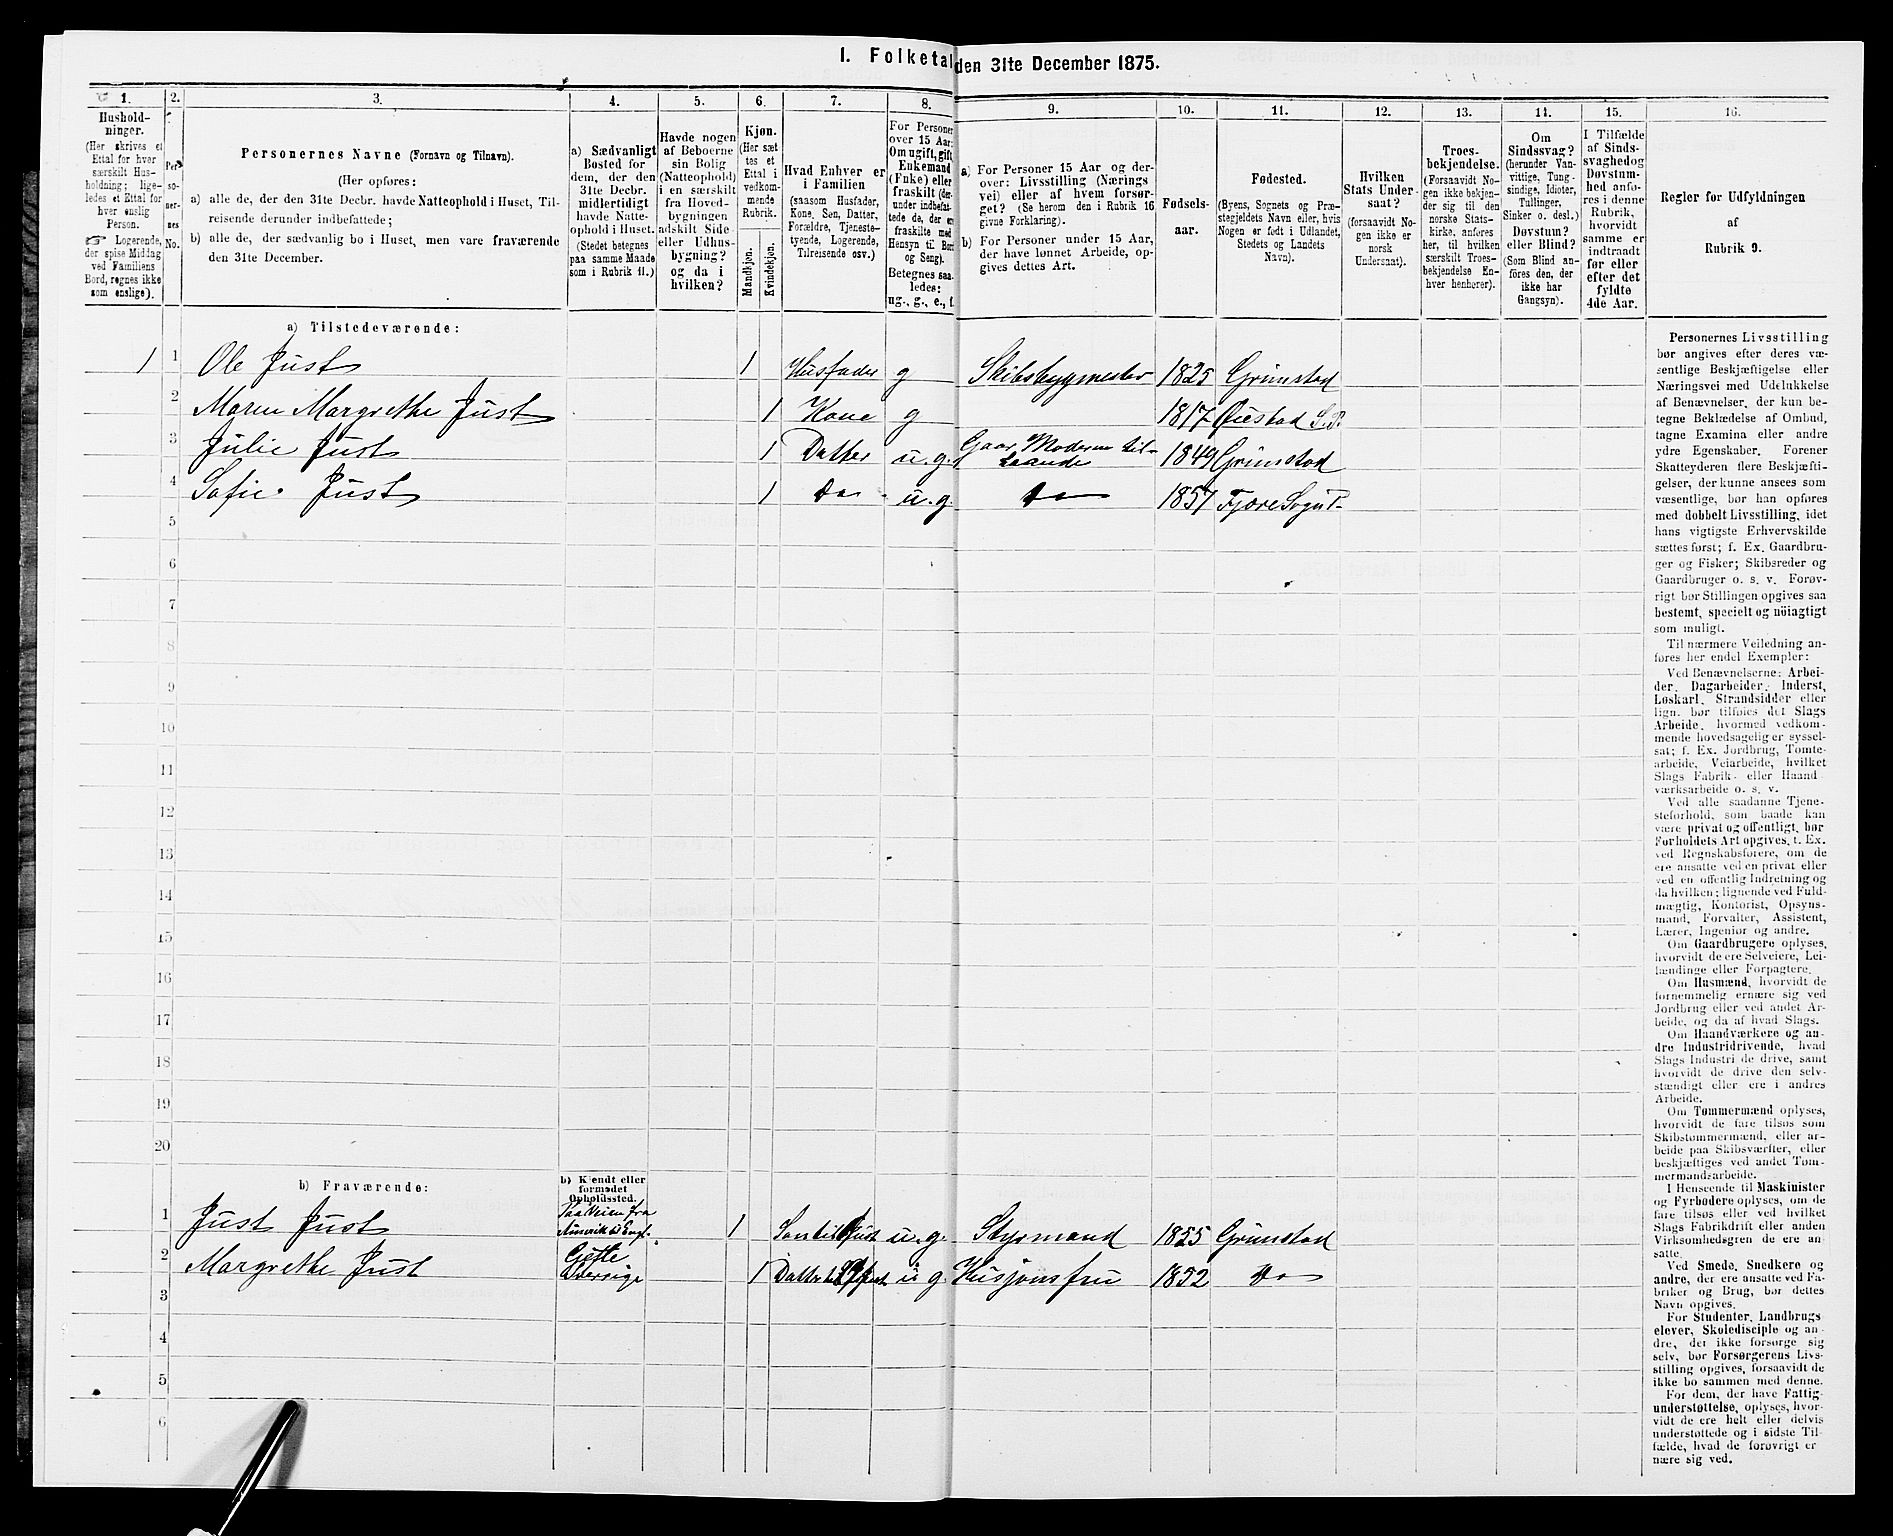 I. Folketal den 31te December 1875.
1. 2. 3. 4. 5. 6. 7. 8. 9. 10. 11. 12. 13. 14. 15. 16.
Hushold-
ninger.
(Her skrives et
Ettal for hver
særskilt Hus-
holdning; lige-
ledes et Ettal for
hver enslig
Person.
☞ Logerende,
der spise Middag
ved Familiens
Bord, regnes ikke
som enslige).
Per-
so-
ner-
nes
No.
Personernes Navne (Fornavn og Tilnavn).
(Her opføres:
a) alle de, der den 31te Decbr. havde Natteophold i Huset, Til-
reisende derunder indbefattede;
b) alle de, der sædvanlig bo i Huset, men vare fraværende
den 31te December.
a) Sædvanligt
Bosted for
dem, der den
31te Decbr.
midlertidigt
havde Natte-
ophold i Huset.
(Stedet betegnes
paa samme Maade
som i Rubrik 11.)
Havde nogen
af Beboerne
sin Bolig
(Natteophold)
i en særskilt
fra Hoved-
bygningen
adskilt Side-
eller Udhus-
bygning?
og da i
hvilken?
Kjøn.
(Her sæt
tes et
Ettal i
vedkom-
mende
Rubrik.
Mandkjøn.
Kvindekjøn.
Hvad Enhver er
i Familien
(saasom Husfader,
Kone, Søn, Datter,
Forældre, Tjeneste-
tyende, Logerende,
Tilreisende osv.)
For Personer
over 15 Aar:
Om ugift, gift,
Enkemand
(Enke) eller
fraskilt (der-
under indbefat-
tede de, der ere
fraskilte med
Hensyn til Bord
og Seng).
Betegnes saa-
ledes:
ug., g., e., f.
a) For Personer 15 Aar og der-
over: Livsstilling (Nærings
vei) eller af hvem forsør-
get? (Se herom den i Rubrik 16
givne Forklaring).
b) For Personer under 15 Aar,
der have lønnet Arbeide, op-
gives dettes Art.
Fødsels-
aar.
Fødested.
(Byens, Sognets og Præ-
stegjeldets Navn eller, hvis
Nogen er født i Udlandet,
Stedets og Landets
Navn).
Hvilken
Stats Under-
saat?
(forsaavidt No-
gen ikke er
norsk
Undersaat).
Troes-
bekjendelse.
(Forsaavidt No-
gen ikke bekjen-
der sig til den
norske Stats-
kirke, anføres
her, til hvilken
særskilt Troes-
bekjendelse En-
hver henhører).
Om
Sindssvag?
(herunder Van-
vittige, Tung-
sindige, Idioter,
Tullinger,
Sinker o. desl.)
Døvstum?
eller Blind?
(Som Blind an-
føres den, der
ikke har
Gangsyn).
I Tilfælde
af Sinds-
svaghed og
Døvstum-
hed anfø-
res i denne
Rubrik,
hvorvidt
samme er
indtraadt
før eller
efter det
fyldte
4de Aar.
Regler for Udfyldningen
af
Rubrik 9.
a) Tilstedeværende:
1 1 Ole Just 1 Husfader g Skibsbygmester 1825 Grimstad
2 Maren Margrethe Just 1 Kone g 1817 Øiestad S.P.
3 Julie Just 1 Datter u.g. Gaar Moderen til-
haande 1849 Grimstad
4 Sofie Just 1 Do u.g. Do 1857 Fjære Sogn
5
6
7
8
9
10
11
12
13
14
15
16
17
18
19
20
b) Fraværende:
b) Kjendt eller
formodet
Opholdssted.
1 Just Just Paa Reisen fra
Amerik til Engl. 1 Søn til O Just u.g. Styrmand 1855 Grimstad
2 Margrethe Just Gefle
Sverige 1 Datter til O Just u g. Husjomfru 1852 Do
3
4
5
6
Personernes Livsstilling
bør angives efter deres væ-
sentlige Beskjæftigelse eller
Næringsvei med Udelukkelse
af Benævnelser, der kun be-
tegne Beklædelse af Ombud,
tagne Examina eller andre
ydre Egenskaber. Forener
Skatteyderen flere Beskjæfti-
gelser, der kunne ansees som
væsentlige, bør han opføres
med dobbelt Livsstilling, idet
hans vigtigste Erhvervskilde
sættes først; f. Ex. Gaardbru-
ger og Fisker; Skibsreder og
Gaardbruger o. s. v. Forøv-
rigt bør Stillingen opgives saa
bestemt, specielt og nöiagtigt
som muligt.
Til nærmere Veiledning an-
føres her endel Exempler:
Ved Benævnelserne: Arbei-
der, Dagarbeider, Inderst,
Løskarl, Strandsidder eller
lign. bør tilføies det Slags
Arbeide, hvormed vedkom-
mende hovedsagelig er syssel-
sat; f. Ex. Jordbrug, Tomte-
arbeide, Veiarbeide, hvilket
Slags Fabrik- eller Haand-
værksarbeide o. s. v.
Ved alle saadanne Tjene-
steforhold, som baade kan
være privat og offentligt, bør
Forholdets Art opgives, t. Ex.
ved Regnskabsførere, om de
ere ansatte ved en privat eller
ved en offentlig Indretning og
da hvilken; lignende ved Fuld-
mægtig, Kontorist, Opsyns-
mand, Forvalter, Assistent,
Lærer, Ingeniør og andre.
Om Gaardbrugere oplyses,
hvorvidt de ere Selveiere, Lei-
lændinge eller Forpagtere.
Om Husmænd, hvorvidt de
fornemmelig ernære sig ved
Jordbrug eller ved andet Ar-
beide, og da af hvad Slags.
Om Haandværkere og an-
dre Industridrivende, hvad
Slags Industri de drive, samt
hvorvidt de drive den selv-
stændigt eller ere i andres
Arbeide.
Om Tømmermænd oplyses,
hvorvidt de fare tilsøs som
Skibstømmermænd, eller ar-
beide paa Skibsværfter, eller
beskjæftiges ved andet Tøm-
mermandsarbeide.
I Henseende til Maskinister
og Fyrbødere oplyses, om de
fare tilsøs eller ved hvilket
Slags Fabrikdrift eller anden
Virksomhedsgren de ere an-
satte.
Ved Smede, Snedkere og
andre, der ere ansatte ved Fa-
briker og Brug, bør dettes
Navn opgives.
For Studenter, Landbrugs
elever, Skoledisciple og an-
dre, der ikke forsørge sig
selv, bør Forsørgerens Livs-
stilling opgives, forsaavidt de
ikke bo sammen med denne.
For dem, der have Fattig-
understøttelse, oplyses, hvor-
vidt de ere helt eller delvis
understøttede og i sidste Til-
fælde, hvad de forøvrigt er
nære sig ved.